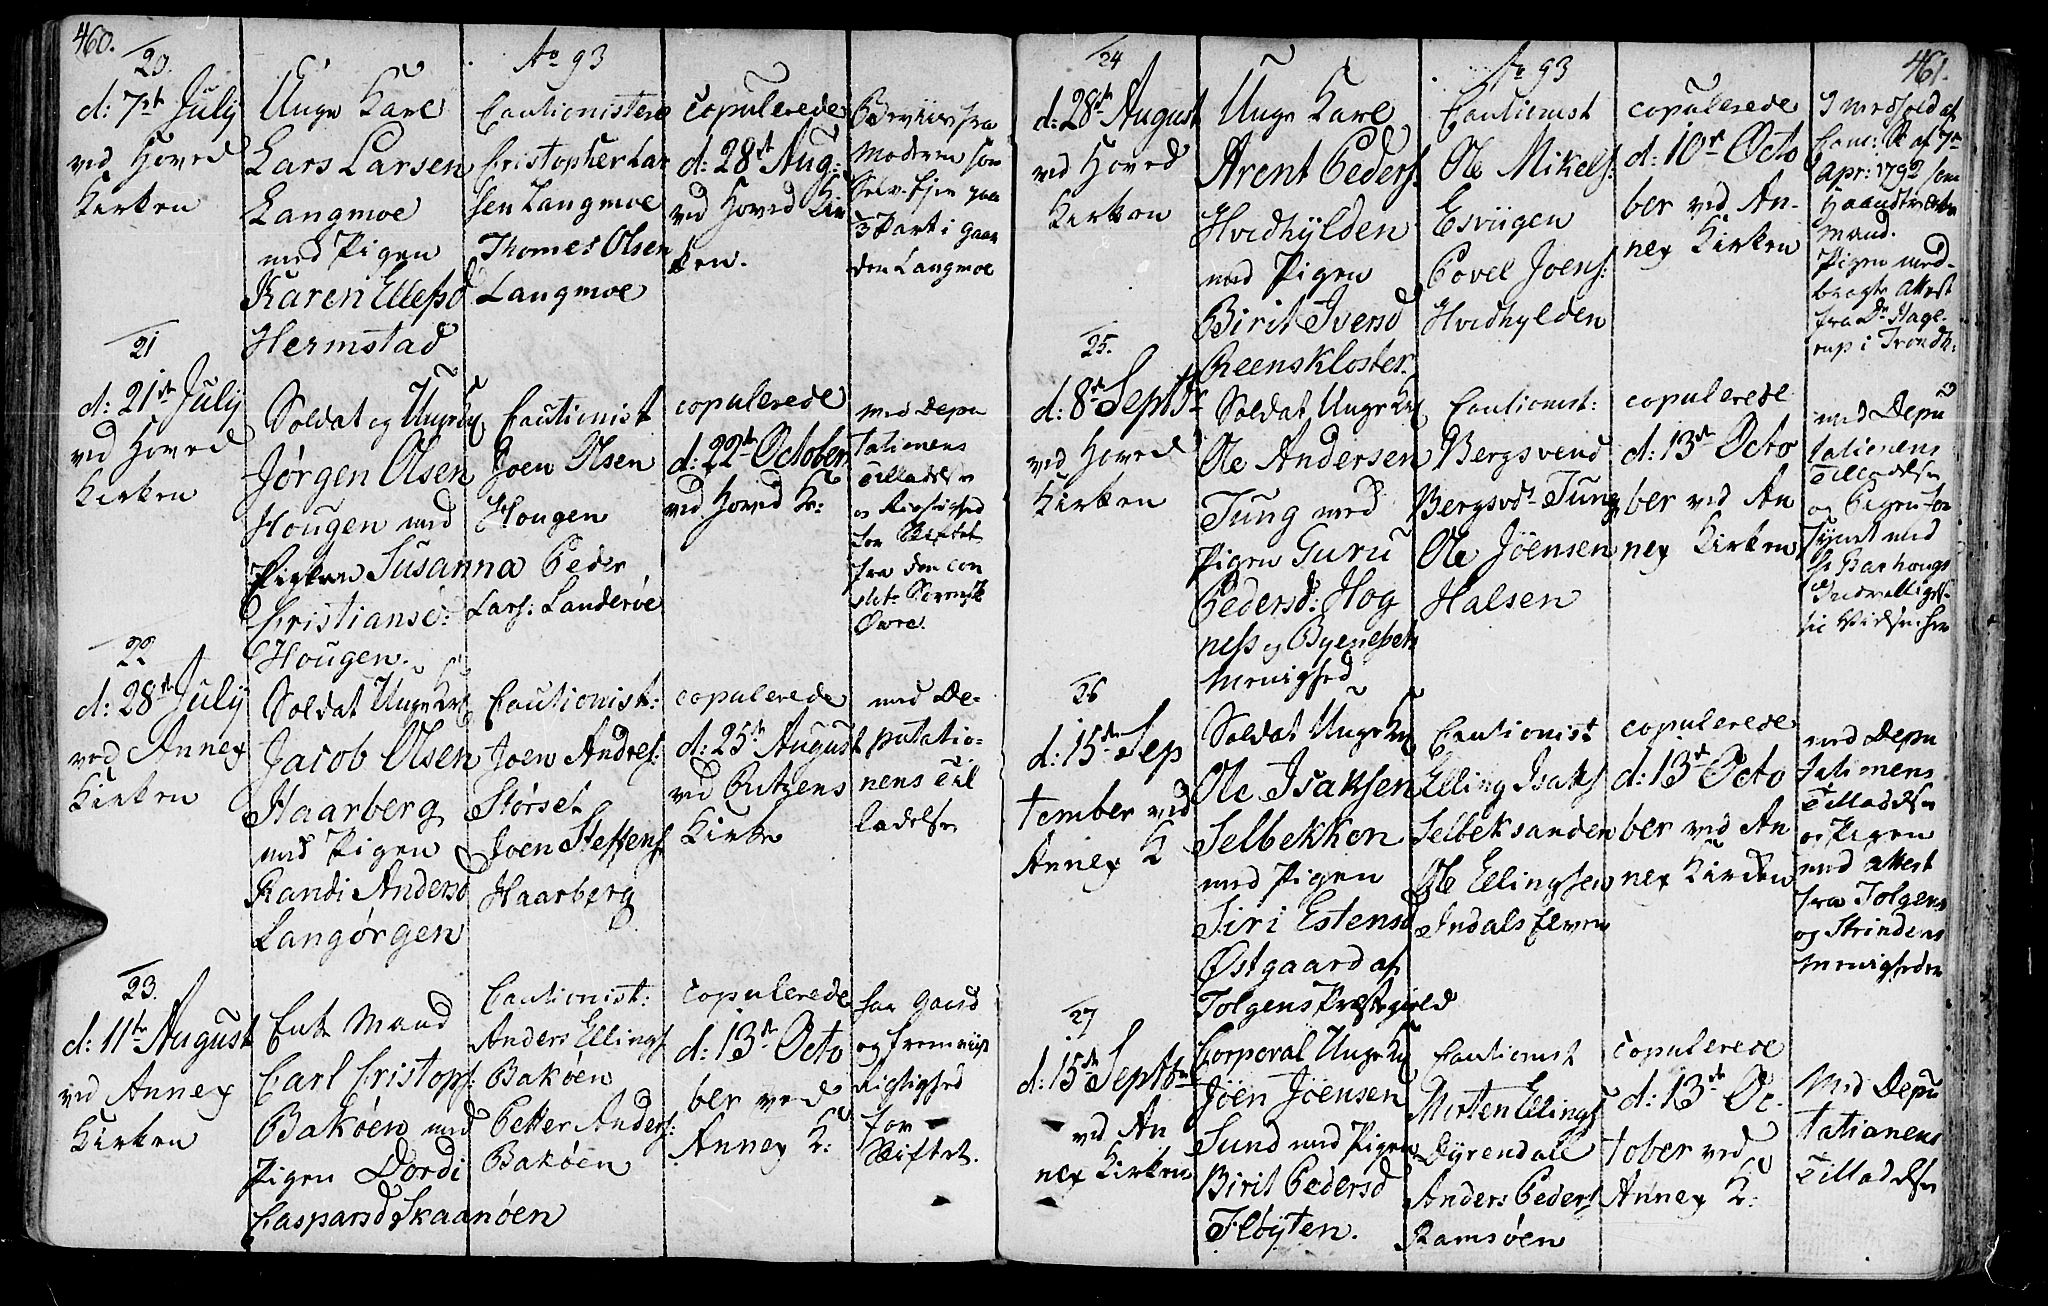 460.
Ao 93
20.
d: 7de July
ved Hoved
Kirken
Unge Karl
Lars Larsen
Langmoe
med Pigen
Karen Ellefsd
Hermstad
Cautionistere
Cristopher Lar
sen Langmoe
Thomes Olsen
Langmoe
copulerede
d: 28de Aug:
ved Hoved Kir
ken.
Beviis fra
Moderen som
Selv-Ejer paa
3 Part i Gaar
den Langmoe
21
d: 21de July
ved Hoved
Kirken
Soldat og Unge K
Jørgen Olsen
Hougen med
Pigen Susanna
Cristiansd:
Hougen.
Cautionist
Joen Olsen
Hougen
Peder
Lars: Landerøe
copulerede
d: 22de October
ved Hoved K:
med Depu
tationens
Tilladelse
og Rigtighed
for Skiftet
fra den con
stit: Sorensk
Øwre.
22
d: 28de July
ved Annex
Kirken
Soldat Unge Karl
Jacob Olsen
Haarberg
med Pigen
Randi Andersd
Langørgen
Cautionist:
Joen Andres:
Størset
Joen Steffens
Haarberg
copulerede
d: 25de August
ved Ørkens
Kirke
med De-
putatio-
nens Til
ladelse
23.
d: 11te August
ved Annex
Kirken
Enke Mand
Carl Cristops:
Bakøen med
Pigen Dordi
Caspersd Skaanøen
Cautionist:
Anders Ellings
Bakøen
Petter Anders:
Bakøen
copulerede
d: 13de Octo
ber ved
Annex K:
har Gaard
og fremviist
Rigtighed
for
Skiftet.
461.
Ao 93
24
d: 28de August
ved Hoved
Kirken
Unge Karl
Arent Peders:
Hvidhylden
med Pigen
Birit Iversd
Reensklostert
Cautionist
Ole Mikels:
Esviigen
Povel Joens:
Hvidhylden
copulerede
d: 10de Octo
ber ved An-
nex Kirken
I medhold af
Canc: Sk af 7de
Apr: 1792 som
Haandværks
Mand.
Pigen med-
bragte Attest
fra Dr Hage-
rup i Trondh:
25.
d: 8de Septbr
ved Hoved
Kirken
Soldat Unge Karl
Ole Andersen
Tung med
Pigen Guru
Pedersd: Hog
ness og Byenessets
Menighed
Cautionist:
Bergsvend
Bergsvds Tung
Ole Jöensen
Halsen
copulerede
d: 13de Octo
ber ved An
nex Kirken
med Depu
tationens
Tilladelse
og Pigen for
synet med
Hr Barhougs
26
d: 15de Sep
tember ved
Annex K
Soldat Unge K
Ole Isaksen
Selbekken
med Pigen
Siri Estensd
Østgaard af
Tolgens Præstegield
Cautionist
Elling Isaks
Selbeksanden
Ole Ellingsen
Indals Elven
copulerede
d: 13de Octo
ber ved An
nex Kirken
med Depu
tationens
Tilladelse
og Pigen
med Attest
fra Tolgens
og Strindens
Menigheder
27
d: 15de Septbr
ved An
nex Kirken
Corporal Unge K
Jöen Jöensen
Sund med Pigen
Birit Pedersd
Fløyten.
Cautionist
Morten Ellings
Dyrendahl
Anders Peders
Ramsøen
copulerede
d: 13de Oc-
tober ved
Annex K:
Med Depu
tationens
Tilladelse